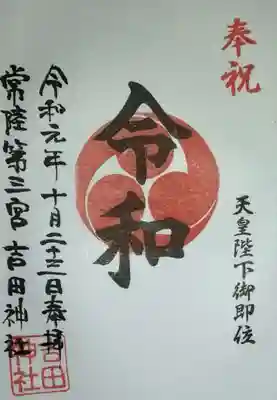 奉祝
天皇陛下御即位
令和
令和元年十月二十二日奉拝
常陸第三宮 吉田神社
吉田神社